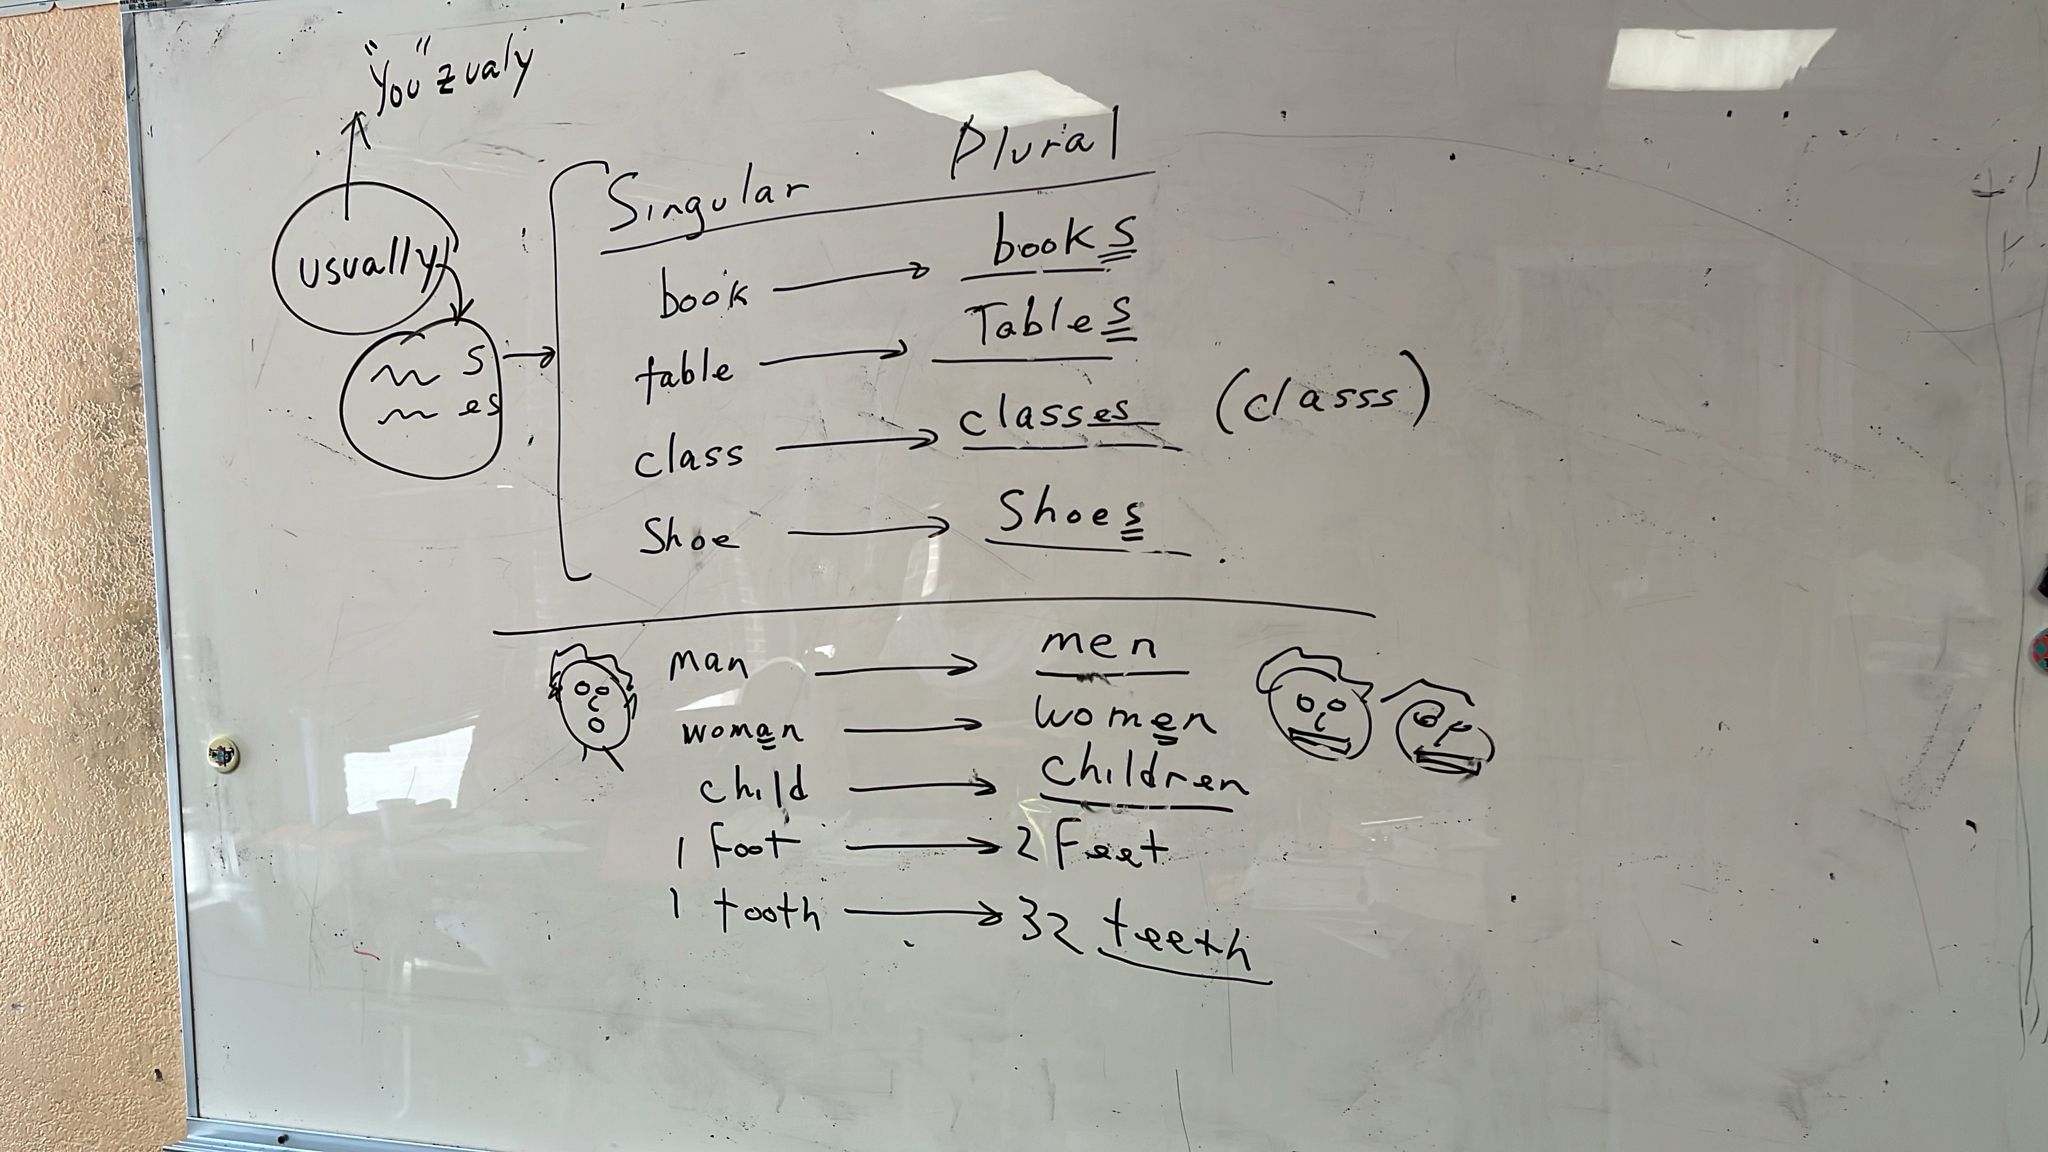 "You" zualy
usually
~~ s
~~ es
Singular Plural
book → books
table → Tables
class → classes (classs)
Shoe → Shoes
man → men
woman → women
child → children
1 foot → 2 Feet
1 tooth → 32 teeth